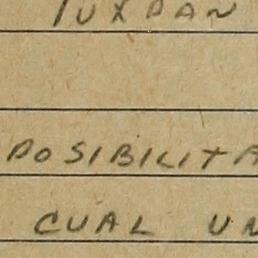 TUXPAN
POSIBILITA
CUAL UN